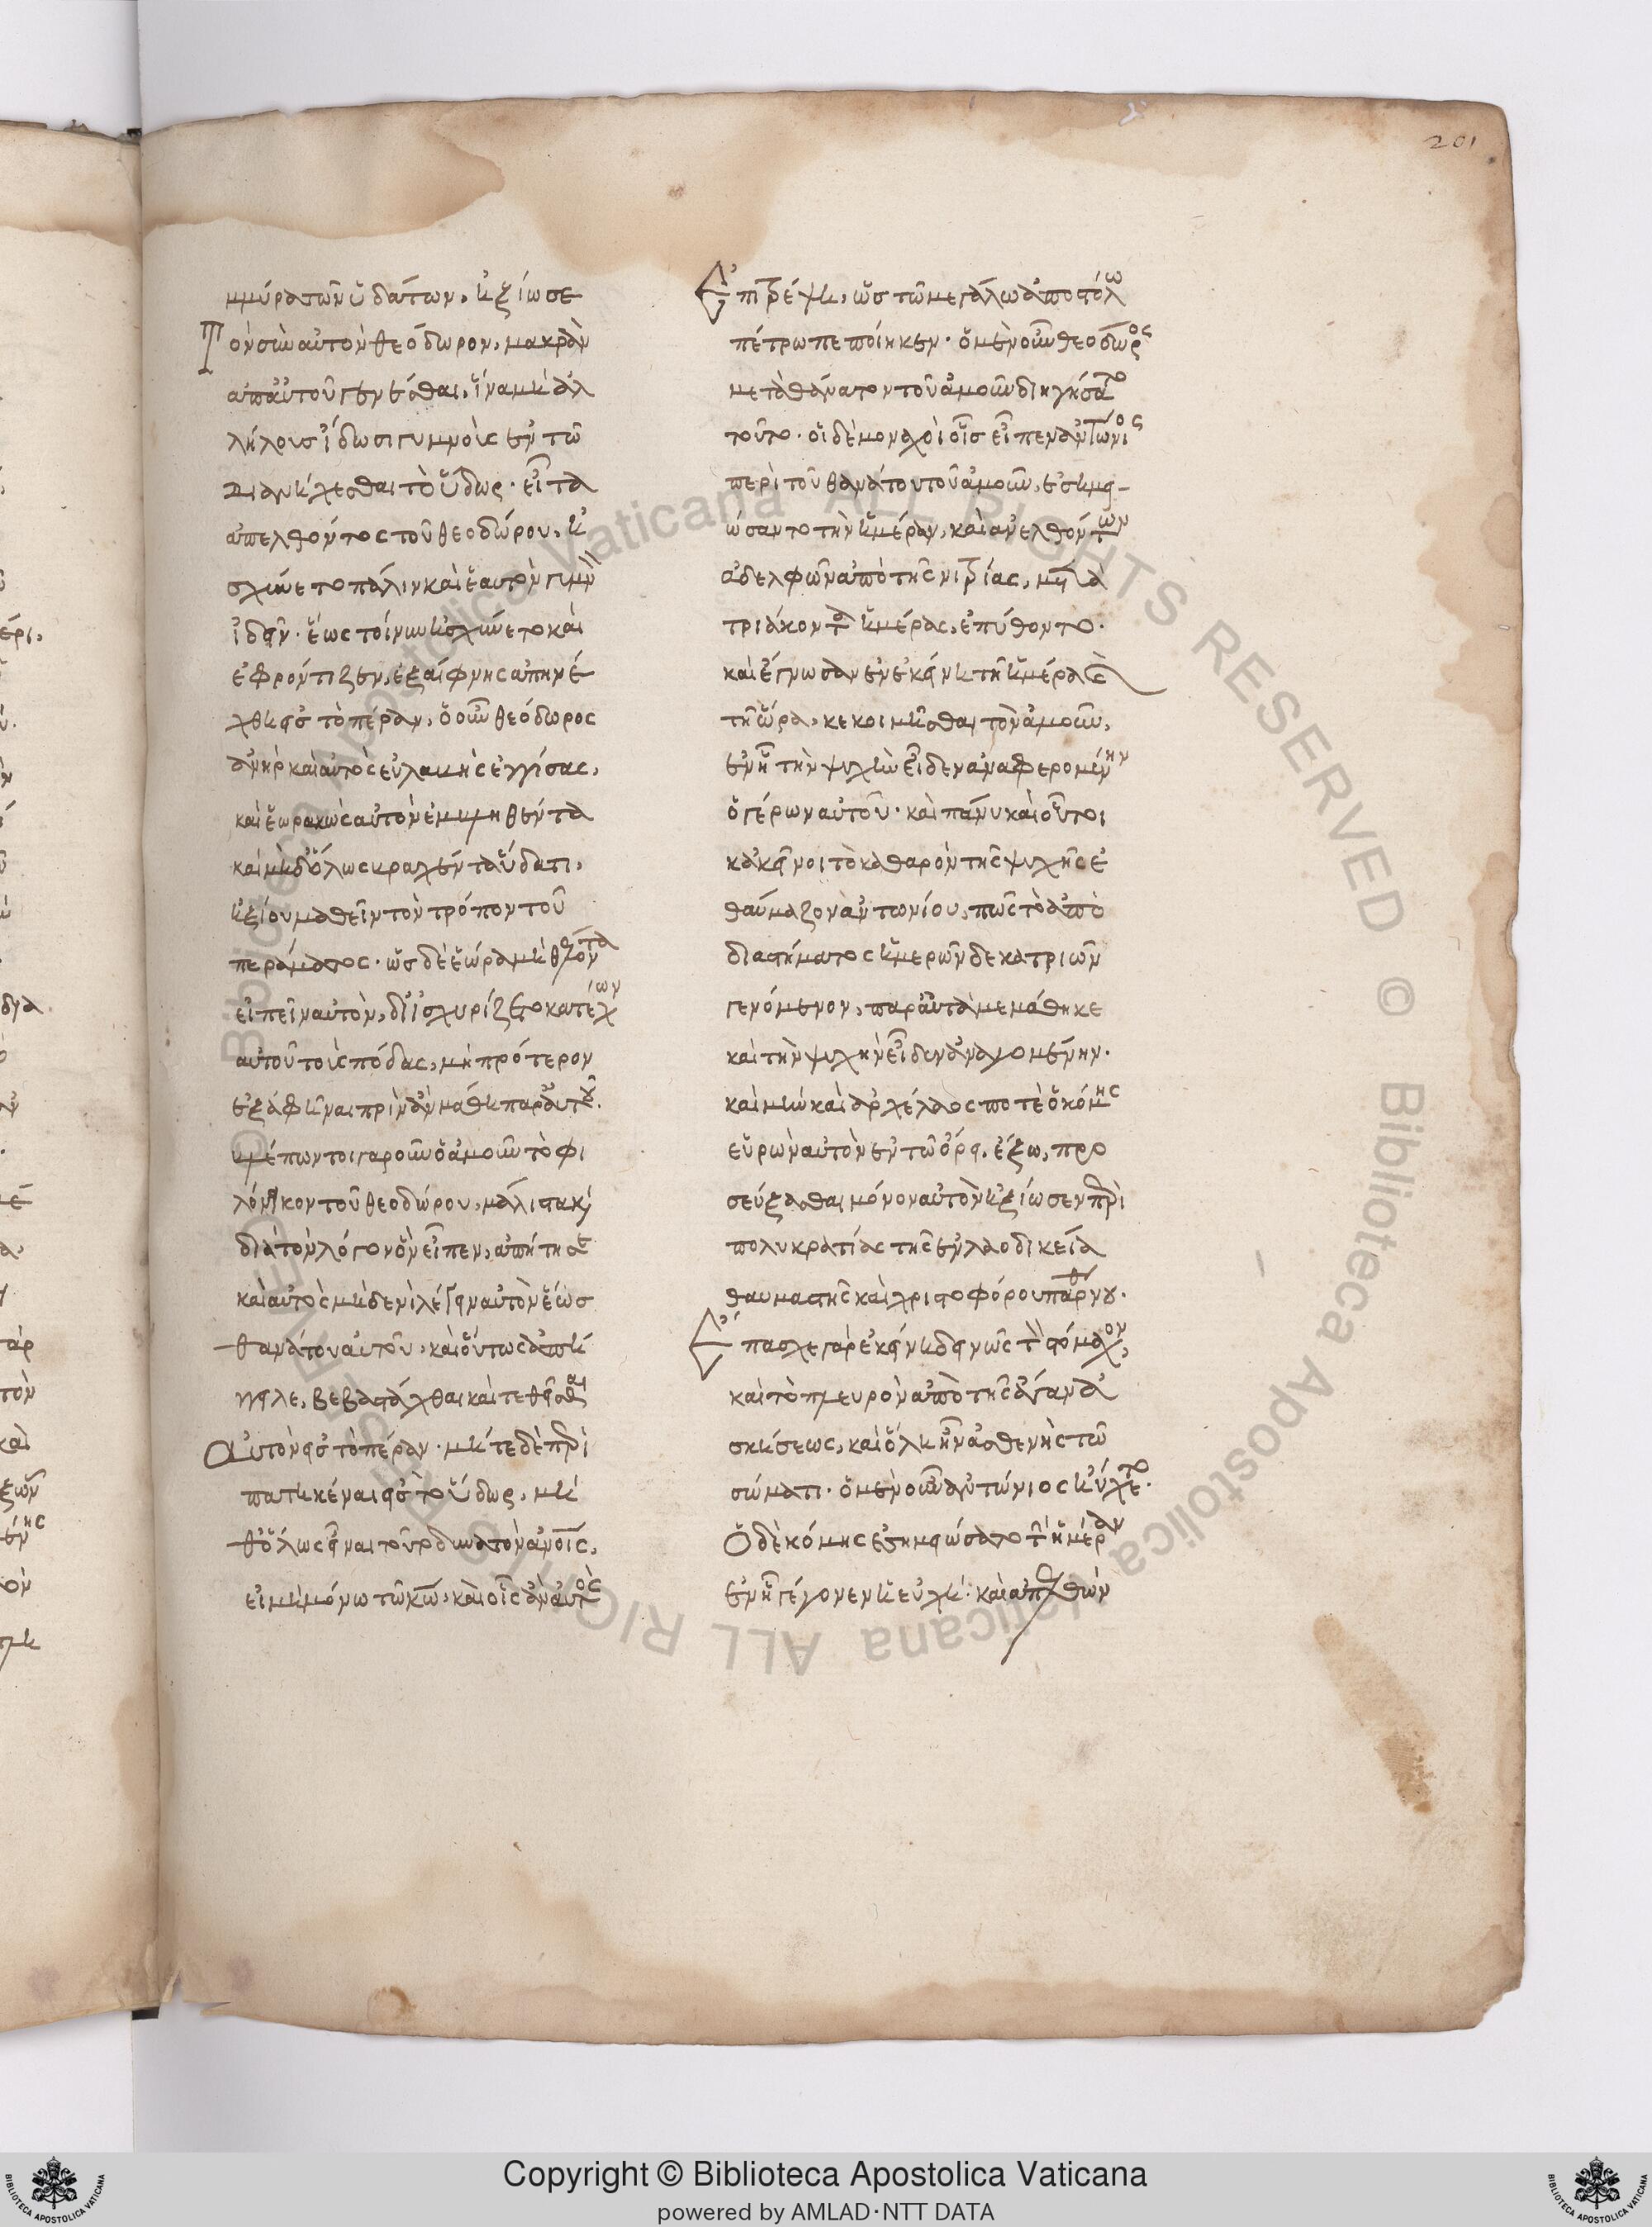 201
μμύρα τῶν ὑδάτων, ἠξίωσε
τὸν σὺν αὐτὸν θεόδωρον, μακρὰν
ἀπ' αὐτοῦ γενέσθαι, ἵνα μὴ ἀλ
λήλους ἴδωσι γυμνοὺς ἐν τῶ
διανήχεσθαι τὸ ὕδωρ· εἶτα
ἀπελθόντος τοῦ θεοδώρου, ἠ
σχύνετο πάλιν καὶ ἑαυτὸν γυμνὸν
ἰδεῖν· ἕως τοίνυν ἠσχύνετο καὶ
ἐφρόντιζεν, ἐξαίφνης ἀπηνέ
χθη εἰς τὸ πέραν, ὁ οὖν θεόδωρος
ἀνὴρ καὶ αὐτὸς εὐλαβὴς ἐγγίσας,
καὶ ἑωρακὼς αὐτὸν
καὶ μηδ' ὅλως βραχέντα ὕδατι,
ἠξίου μαθεῖν τὸν τρόπον τοῦ
περάματος· ὡς δὲ ἑώρα μὴ θέλοντα
εἰπεῖν αὐτὸν, διϊσχυρίζετο κατέχων
αὐτοῦ τοὺς πόδας, μὴ πρότερον
ἐξαφῆναι πρὶν ἂν μάθη παρ' αὐτοῦ.
βλέπων τοιγαροῦν ὁ ἀμοῦν τὸ φι
λόνικον τοῦ θεοδώρου, μάλιστα καὶ
διὰ τὸν λόγον ὃν εἶπεν, ἀπήτησε
καὶ αὐτὸς μηδενὶ λέγειν αὐτὸν ἕως
θανάτου αὐτοῦ· καὶ οὕτως ἀπή
γγειλε, βεβαστάχθαι καὶ τεθεῖσθαι
αὐτὸν εἰς τὸ πέραν· μήτε δὲ περι
πατηκέναι εἰς τὸ ὕδωρ, μή
θ' ὅλως εἶναι τοῦτο δυνατὸν ἀνοις,
εἰ μὴ μόνω τῶ κω, καὶ οἷς ἂν αὐτὸς
ἐπιτρέψη, ὡς τῶ μεγάλω ἀποστόλω
πέτρω πεποίηκεν· ὁ μὲν οὖν θεοδωρος
μετὰ θάνατον τοῦ ἀμοῦν διηγήσατο
τοῦτο· οἱ δὲ μοναχοὶ οἷς εἶπεν ἀντώνιος
περὶ τοῦ θανάτου τοῦ ἀμοῦν, ἐσημει
ώσαντο τὴν ἡμέραν, καὶ ἀνελθόντων
ἀδελφῶν ἀπὸ τῆς νιτρίας, μετὰ
τριάκοντα ἡμέρας, ἐπύθοντο·
καὶ ἔγνωσαν ἐν ἐκείνη τῆ ἡμέρα καὶ
τῆ ὥρα, κεκοιμῆσθαι τὸν ἀμοῦν,
ἐν ἧ τὴν ψυχὴν εἶδεν ἀναφερομένην
ὁ γέρων αὐτοῦ· καὶ πάνυ καὶ οὗτοι
κἀκεῖνοι τὸ καθαρὸν τῆς ψυχῆς ἐ
θαύμαζον ἀντωνίου, πῶς τὸ ἀπὸ
διαστήματος ἡμερῶν δεκατριῶν
γενόμενον, παρ' αὐτὰ μεμάθηκε
καὶ τὴν ψυχὴν εἶδεν ἀναγομένην.
καὶ μὴν καὶ ἀρχέλαος ποτὲ ὁ κόμης
εὑρὼν αὐτὸν ἐν τῶ ὄρει ἔξω, προ
σεύξασθαι μόνον αὐτὸν ἠξίωσεν περὶ
πολυκρατίας τῆς ἐν λαοδικεία
θαυμαστῆς καὶ χριστοφόρου παρθένου.
ἔπασχε γὰρ ἐκείνη δεινῶς τὸν στόμαχον,
καὶ τὸ πλευρὸν ἀπὸ τῆς ἄγαν ἀ
σκήσεως, καὶ ὅλη ἦν ἀσθενὴς τῶ
σώματι· ὁ μὲν οὖν ἀντώνιος ηὔχετο·
ὁ δὲ κόμης ἐσημειώσατο τὴν ἡμέραν
ἐν ἧ γέγονεν ἡ εὐχή· καὶ ἀπελθὼν
Copyright © Biblioteca Apostolica Vaticana
powered by AMLAD·NTT DATA